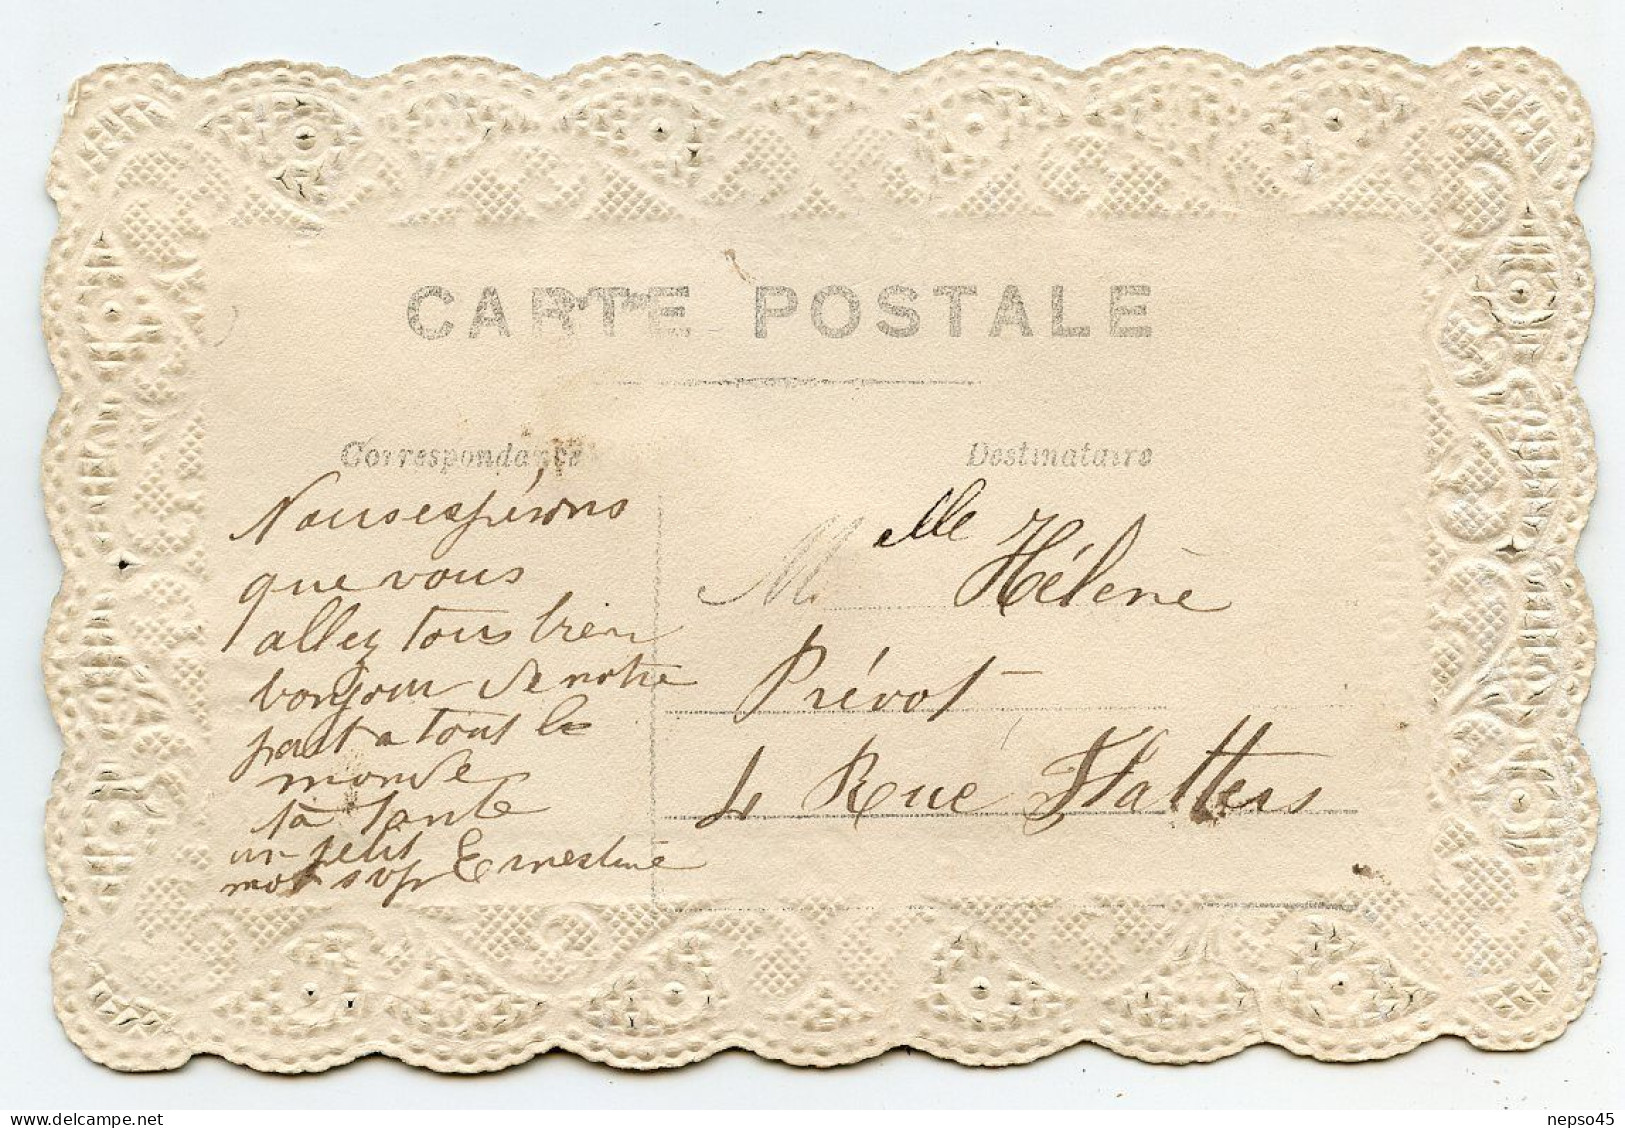 CARTE POSTALE
Correspondance
Nous espérons
que vous
allez tous bien
bonjour de notre
part a tout le
monde
ta tante
Ernestine
un petit
mot svp
Destinataire
Melle Hélène
Prévot
4 Rue Flatters
nepso45